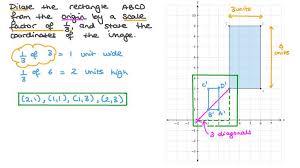 Dilate the rectangle ABCD
from the origin by a scale
factor of 1/3, and state the
coordinates of the image.
1/3 of 3 = 1 unit wide
1/3 of 6 = 2 units high
(2,1), (1,1), (1,3), (2,3)
3 units
6 units
C' D'
B' A'
3 diagonals